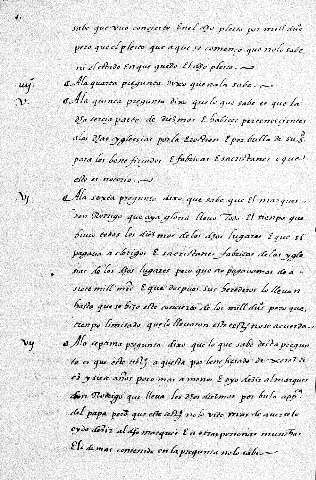 sabe que vuo concierto En el dho pleito por mill du°s
pero que el pleito que a que se començo que no lo sabe
ni el estado En que quedo El dho pleito.
iiij. A la quarta pregunta dixo que no la sabe.
V. A la quinca pregunta dixo que lo que sabe es que la
dha tercia parte de diezmos E habices pertenescientes
a las dhas yglesias por la Erection E por bulla de su s.
para los beneficiados E fabricas E sacristanes e que
esto es notorio.
VI A la sexta pregunta dixo que sabe que El marques
don Rodrigo que aya gloria lleuo todo El tiempo que
biuio todos los diezmos de los dhos lugares E que el
pagaua a clerigos E sacristanes fabricas de las ygle
sias de los dhos lugares pero que no pagaua mas de a
nte mill mrs E que despues sus herederos lo lleuan
hasta que se hizo este concierto de los mill du°s pero que
tiempo limitado que lo lleuaron este testigo no se acuerda
VII A la septima pregunta dixo que lo que sabe desta pregun
ta es que este testigo a questa por beneficiado de
y seis años poco mas o menos E oyo dezir al marques
don Rodrigo que lleua los dhos diezmos por bula
del papa pero que este testigo no lo vido mas de auerlo
oydo dezir al dho marques E a otras personas muchas
E lo demas contenido en la pregunta no lo sabe.